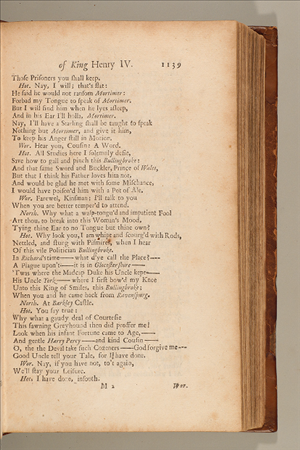 of King Henry IV. 1139
Those Prisoners you shall keep.
Hot. Nay, I will; that's flat:
He said he would not ransom Mortimer:
Forbad my Tongue to speak of Mortimer.
But I will find him when he lyes asleep,
And in his Ear I'll holla, Mortimer.
Nay, I'll have a Starling shall be taught to speak
Nothing but Mortimer, and give it him,
To keep his Anger still in Motion.
Wor. Hear you, Cousin: A Word.
Hot. All Studies here I solemnly defie,
Save how to gall and pinch this Bullingbroke:
And that same Sword and Buckler, Prince of Wales,
But that I think his Father loves him not,
And would be glad he met with some Mischance,
I would have poison'd him with a Pot of Ale.
Wor. Farewel, Kinsman; I'll talk to you
When you are better temper'd to attend.
North. Why what a wasp-tongu'd and impatient Fool
Art thou, to break into this Woman's Mood,
Tying thine Ear to no Tongue but thine own?
Hot. Why look you, I am whipt and scourg'd with Rods,
Nettled, and stung with Pismires, when I hear
Of this vile Politician Bullingbroke.
In Richard's time—what d'ye call the Place?—
A Plague upon't—it is in Glocestershire—
'Twas where the Madcap Duke his Uncle kept—
His Uncle York—where I first bow'd my Knee
Unto this King of Smiles, this Bullingbroke:
When you and he came back from Ravenspurg.
North. At Barkley Castle.
Hot. You say true:
Why what a gaudy deal of Courtesie
This fawning Greyhound then did proffer me!
Look when his infant Fortune came to Age,—
And gentle Harry Percy—and kind Cousin—
O, the the Devil take such Cozeners—God forgive me—
Good Uncle tell your Tale, for I have done.
Wor. Nay, if you have not, to't again,
We'll stay your Leisure.
Hot. I have done, insooth.
M 2 Wor.